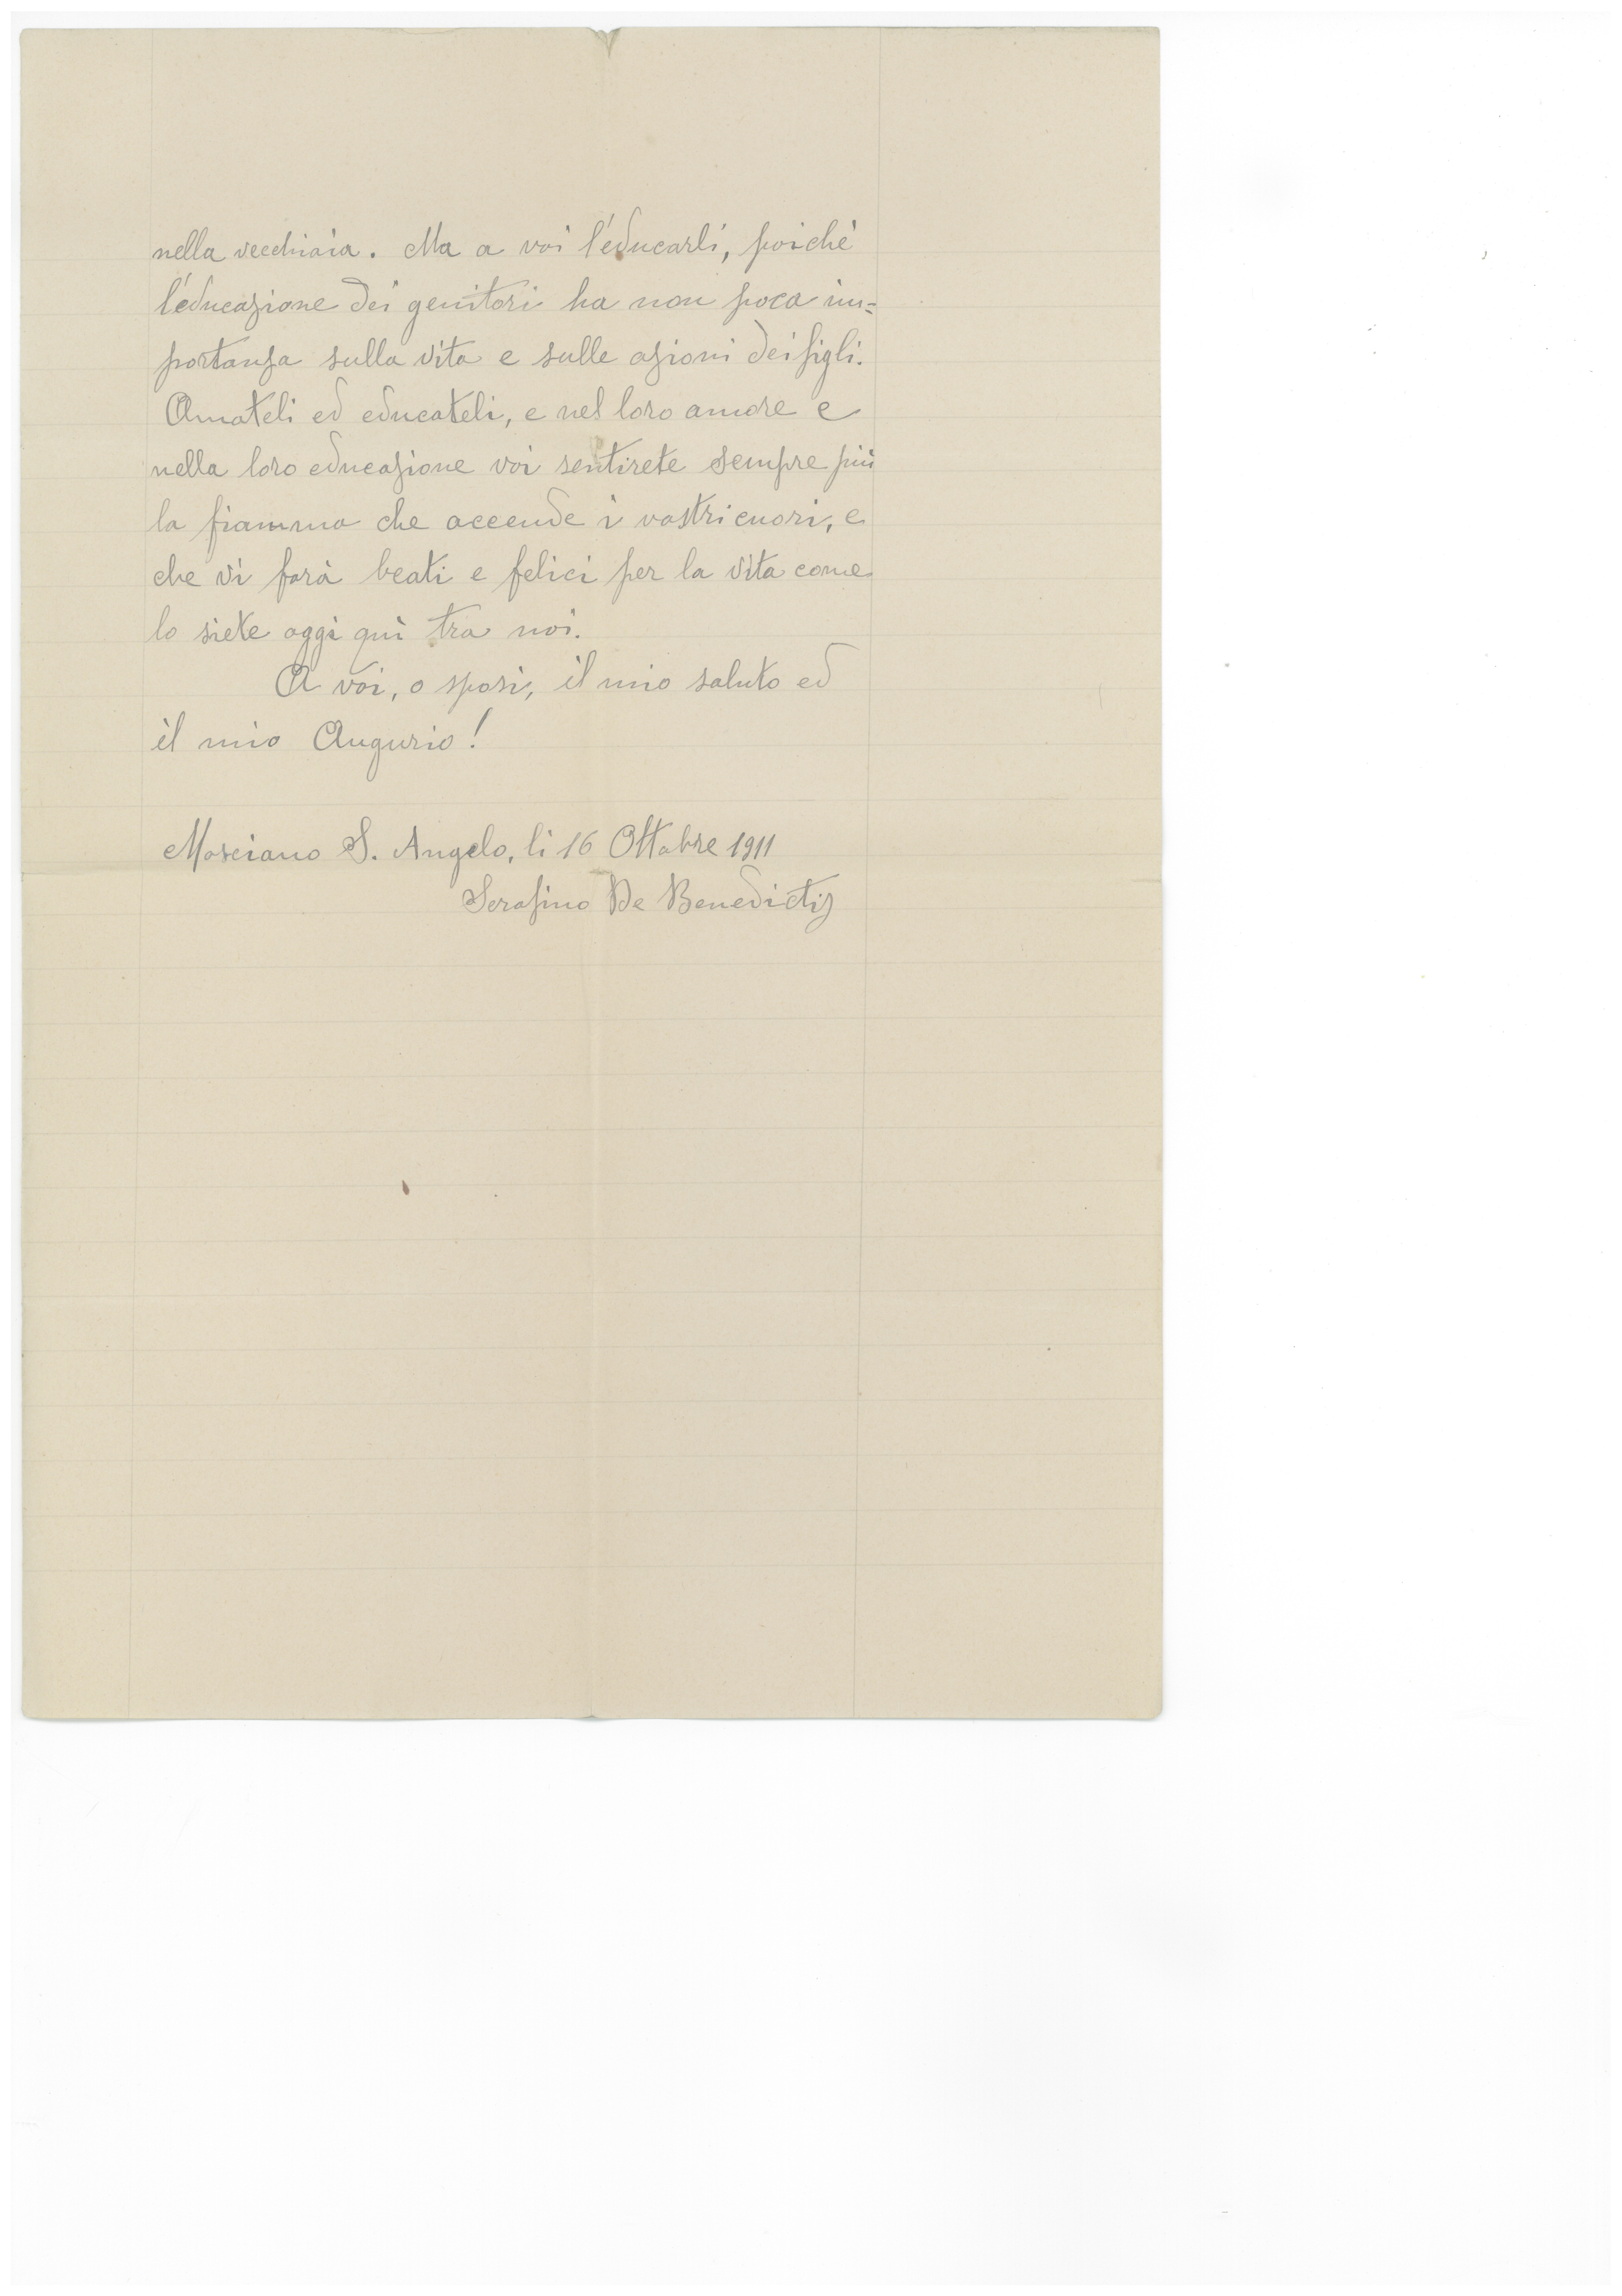 nella vecchiaia. Ma a voi l'educarli, poichè
l'educazione dei genitori ha non poca im=
portanza sulla vita e sulle azioni dei figli.
Amateli ed educateli, e nel loro amore e
nella loro educazione voi sentirete sempre più
la fiamma che accende i vostri cuori, e
che vi farà beati e felici per la vita come
lo siete oggi quì tra noi.
A voi, o sposi, il mio saluto ed
il mio Augurio!
Mosciano S. Angelo, li 16 Ottobre 1911
Serafino De Benedictis